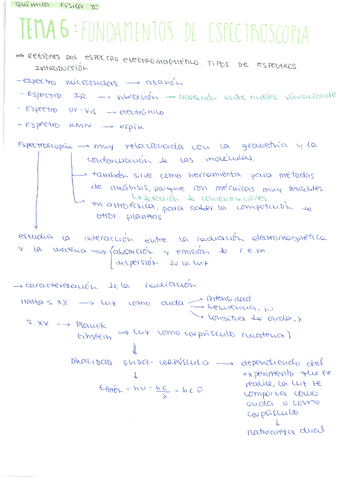 Química Física II
TEMA 6: FUNDAMENTOS DE ESPECTROSCOPIA
⇒ REGIONES DEL ESPECTRO ELECTROMAGNÉTICO. TIPOS DE ESPECTROS.
INTRODUCCIÓN
- espectro microondas → rotación
- Espectro IR → vibración → transición entre niveles vibracionales
- Espectro UV-Vis → electrónico
- Espectro RMN → espín
Espectroscopía → muy relacionada con la geometría y la
conformación de las moléculas.
→ también sirve como herramienta para métodos
de análisis, porque son técnicas muy sensibles.
↳ detección de concentraciones
→ en astrofísica, para saber la composición de
otros planetas
estudia la interacción entre la radiación electromagnética
y la materia → absorción y emisión de r.e.m
dispersión de la luz
→ caracterización de la radiación
hasta S XX → luz como onda → intensidad
→ frecuencia, ν
→ longitud de onda, λ
S XX → Planck
Einstein → luz como corpúsculo (materia)
DUALIDAD ONDA-CORPÚSCULO → dependiendo del
experimento que se
realice, la luz se
comporta como
onda o como
corpúsculo
E fotón = hν = hc/λ = hcν̄
naturaleza dual